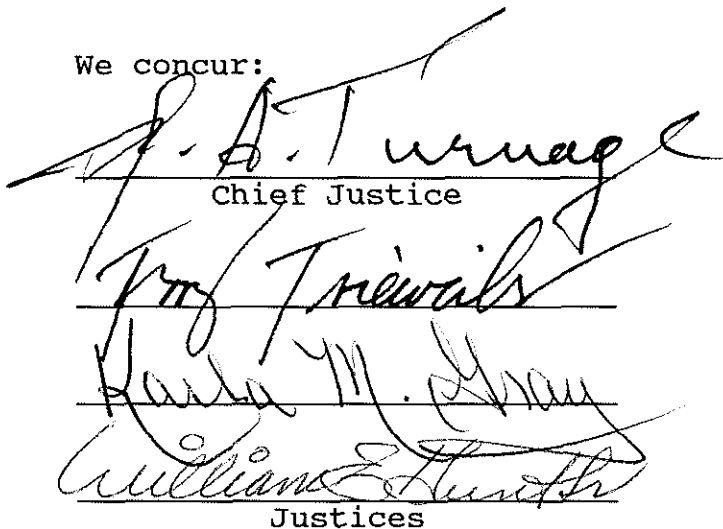 We concur:
J. A. Turnage
Chief Justice
Terry Trieweiler
Karla M. Gray
William E. Hunt Sr
Justices